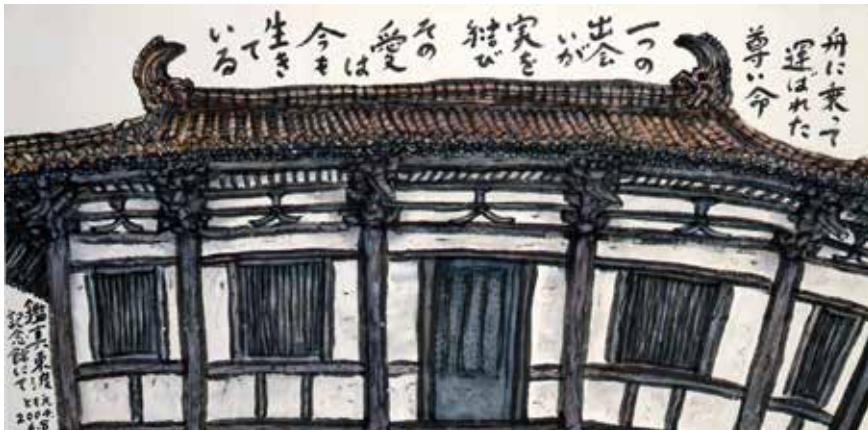 舟に乗って
運ばれた
尊い命
一つの
出会
いが
実を
結び
その
愛
は
今も
生き
て
いる
鑑真東渡
記念館にて